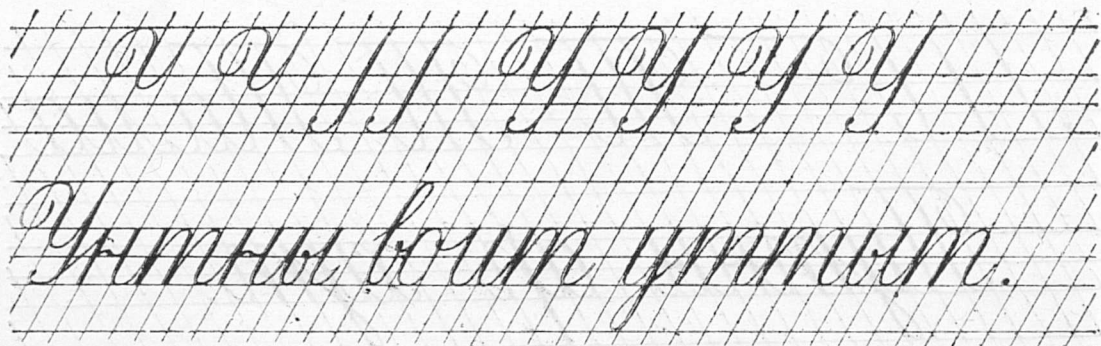 У У У У
Унтны воит уттыт.